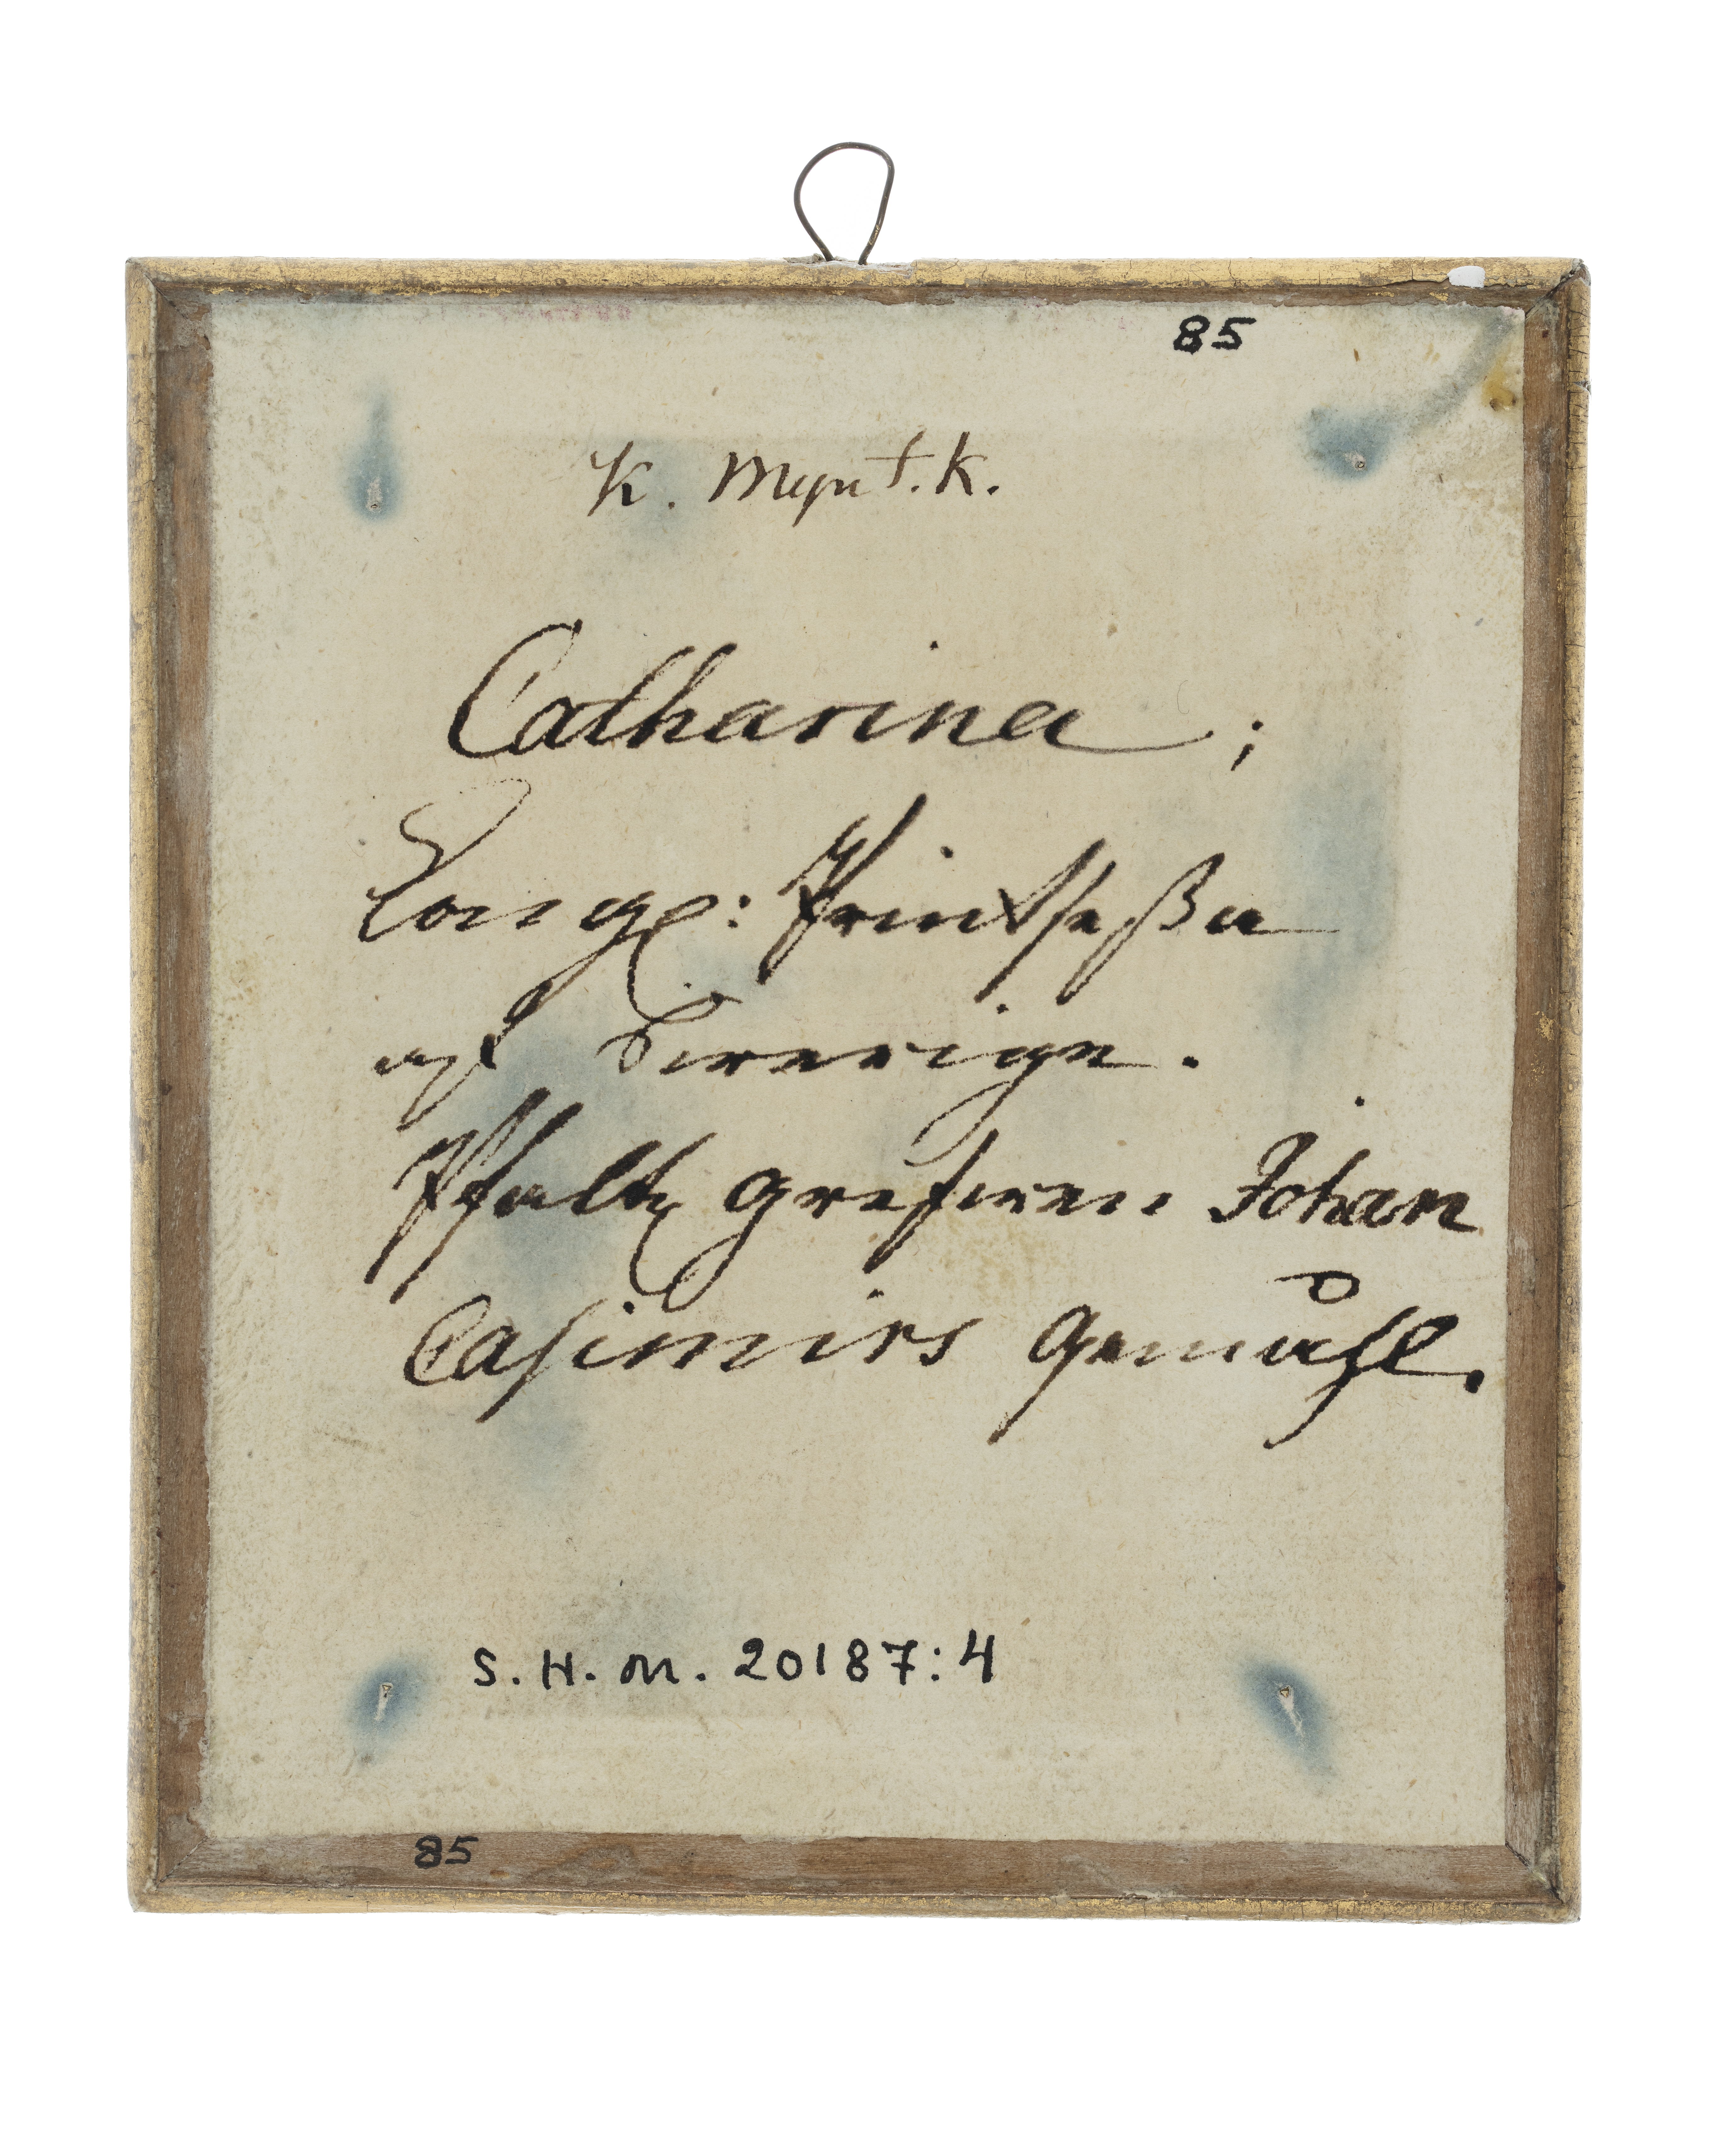 85
K. Mynt.K.
Catharina;
Kongl: Printseßa
af Swerige.
Pfaltz grefwen Johan
Casimirs Gemåhl.
S. H. M. 20187:4
85